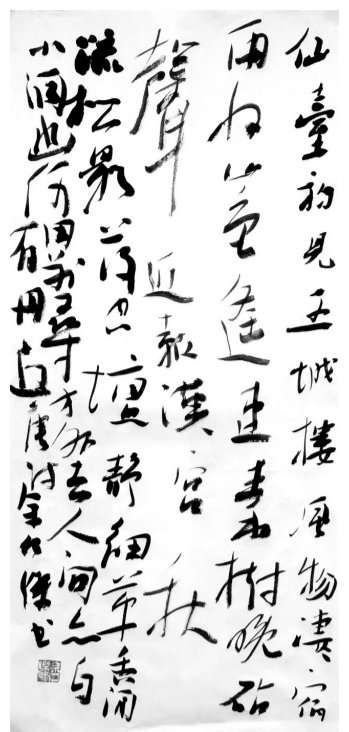 仙臺初見五城樓風物凄々宿
雨收山色遥連秦樹晚砧
聲近報漢宮秋
疏松影落空壇静細草香闲
小洞幽何用别尋方外去人間亦自
有丹丘唐诗余傑书